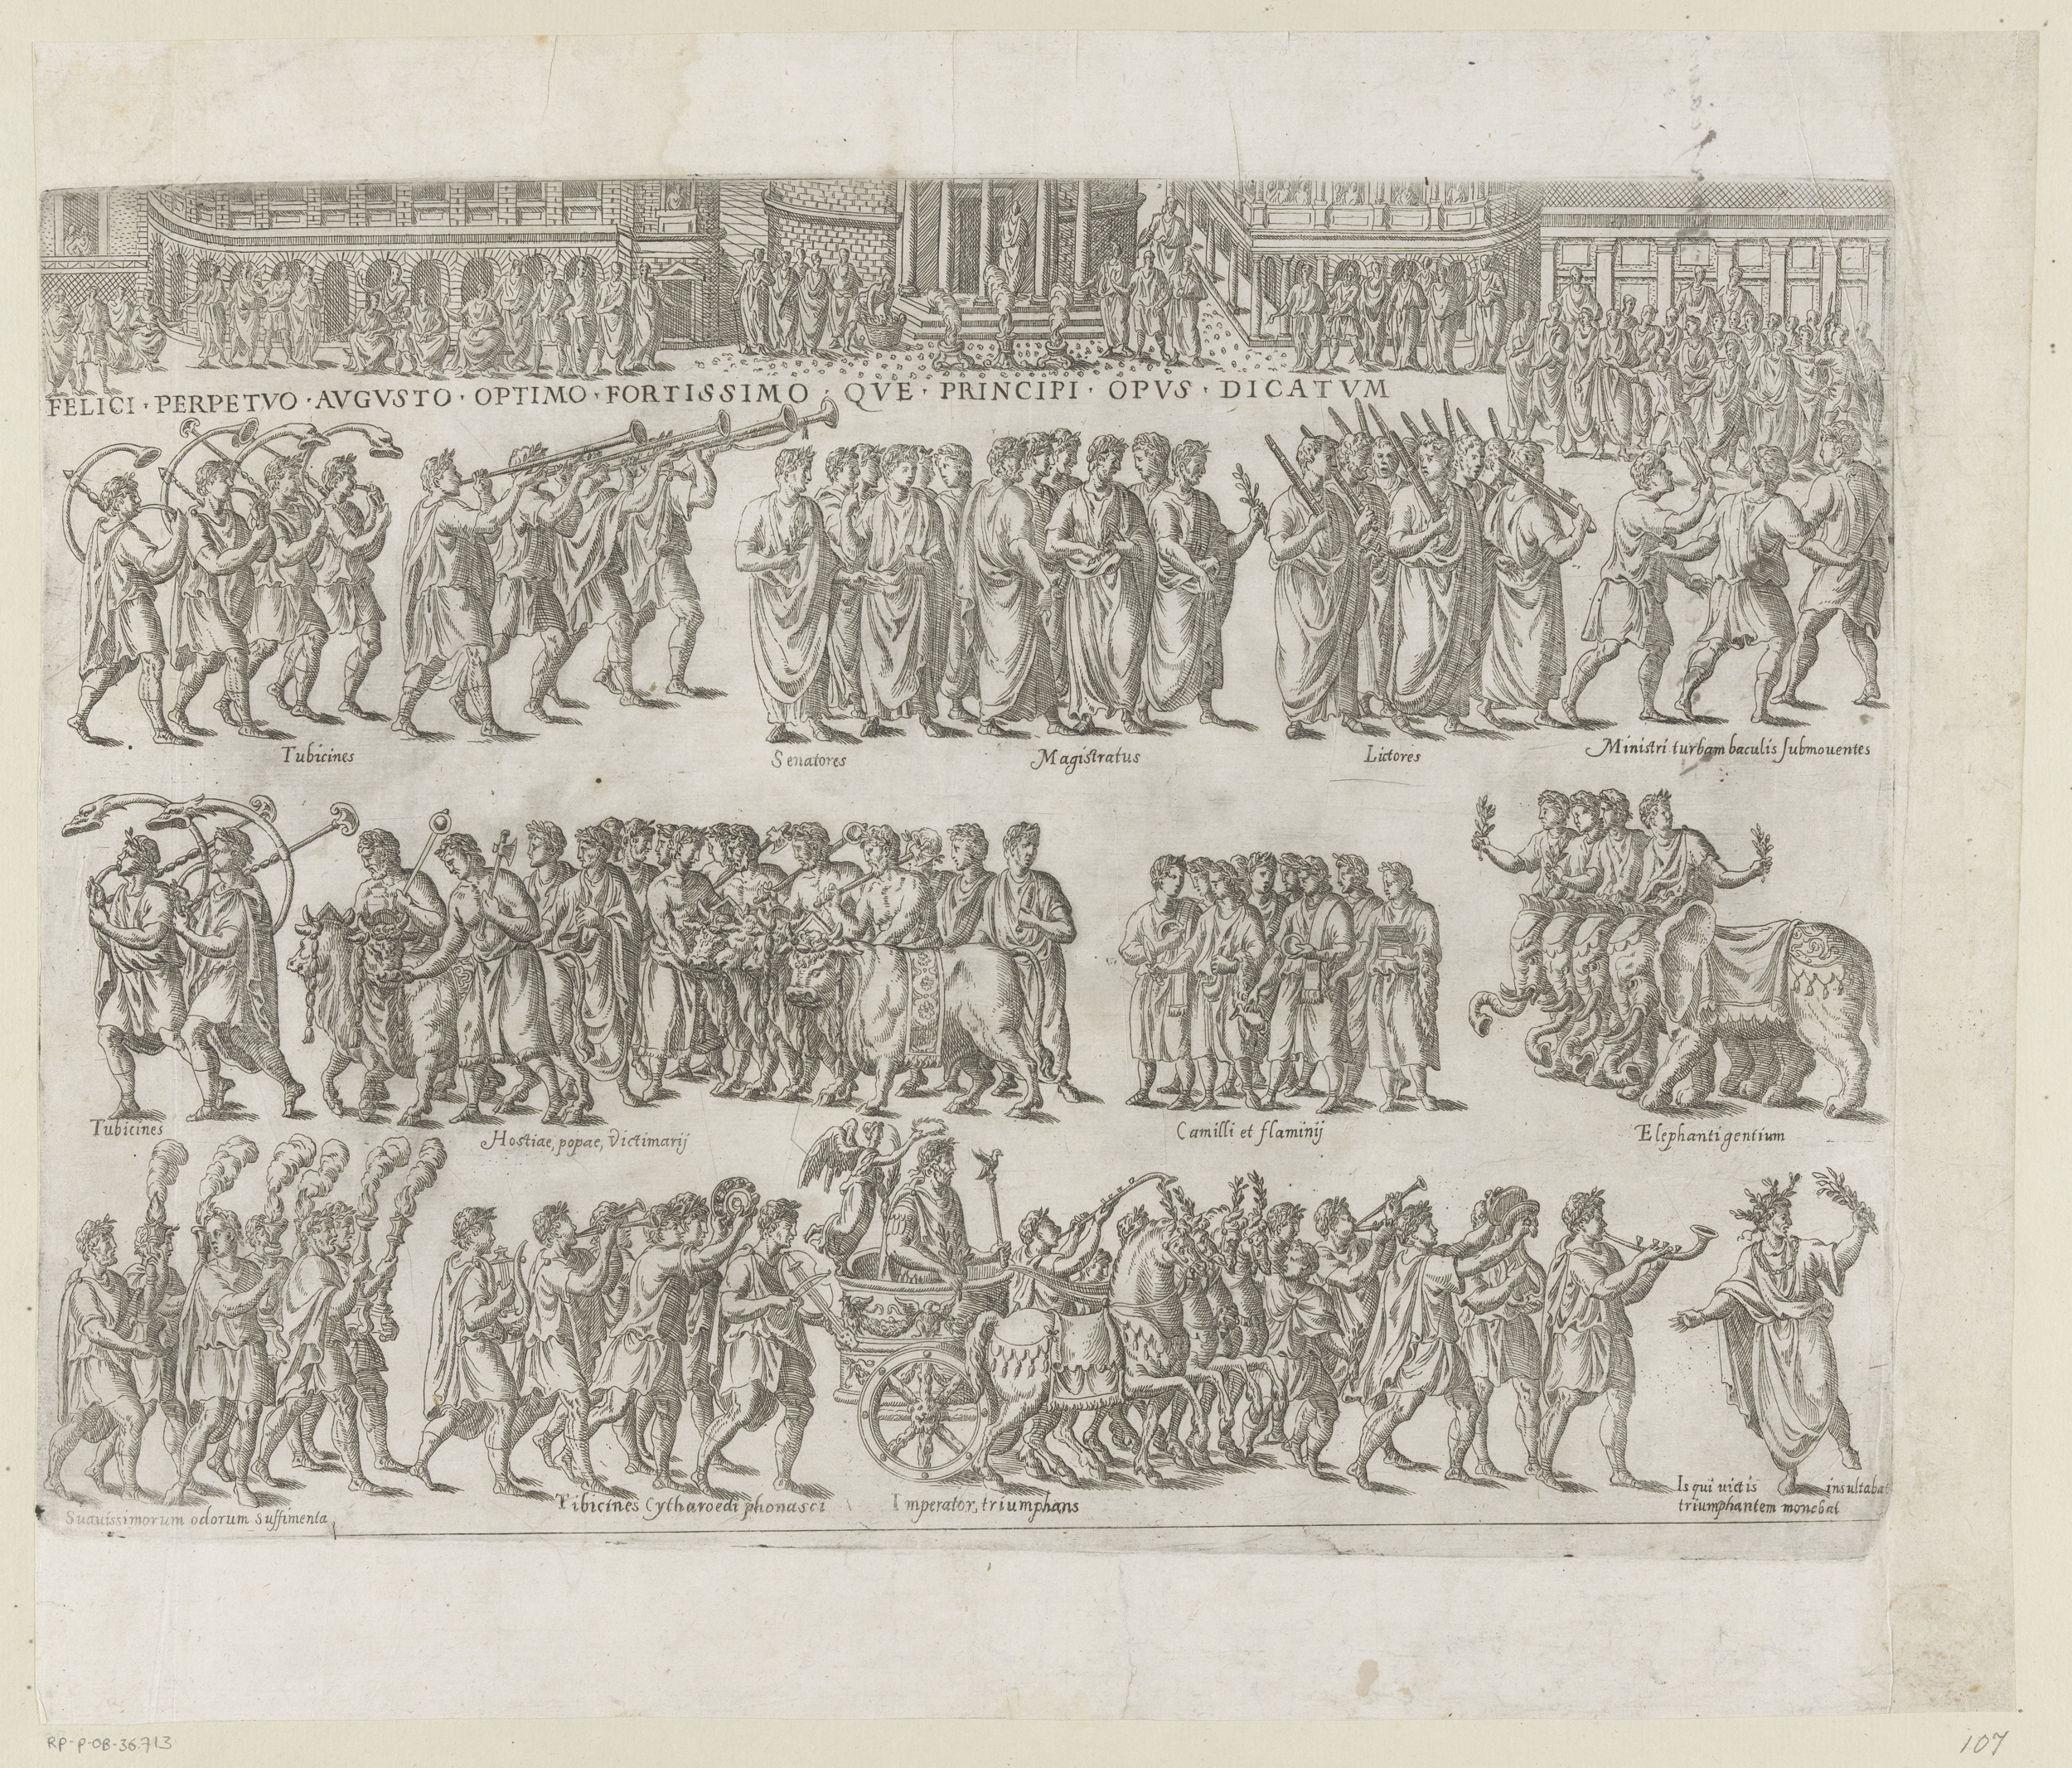 FELICI · PERPETVO · AVGVSTO · OPTIMO · FORTISSIMO · QVE · PRINCIPI · OPVS · DICATVM
Tubicines
Senatores
Magistratus
Lictores
Ministri turbam baculis submouentes
Tubicines
Hostiae, popae, Victimarij
Camilli et flaminij
Elephanti gentium
Suauissimorum odorum Suffimenta
Tibicines Cytharoedi phonasci
Imperator, triumphans
Is qui uictis insultabat
triumphantem monebat
RP-P-OB-36.713
107